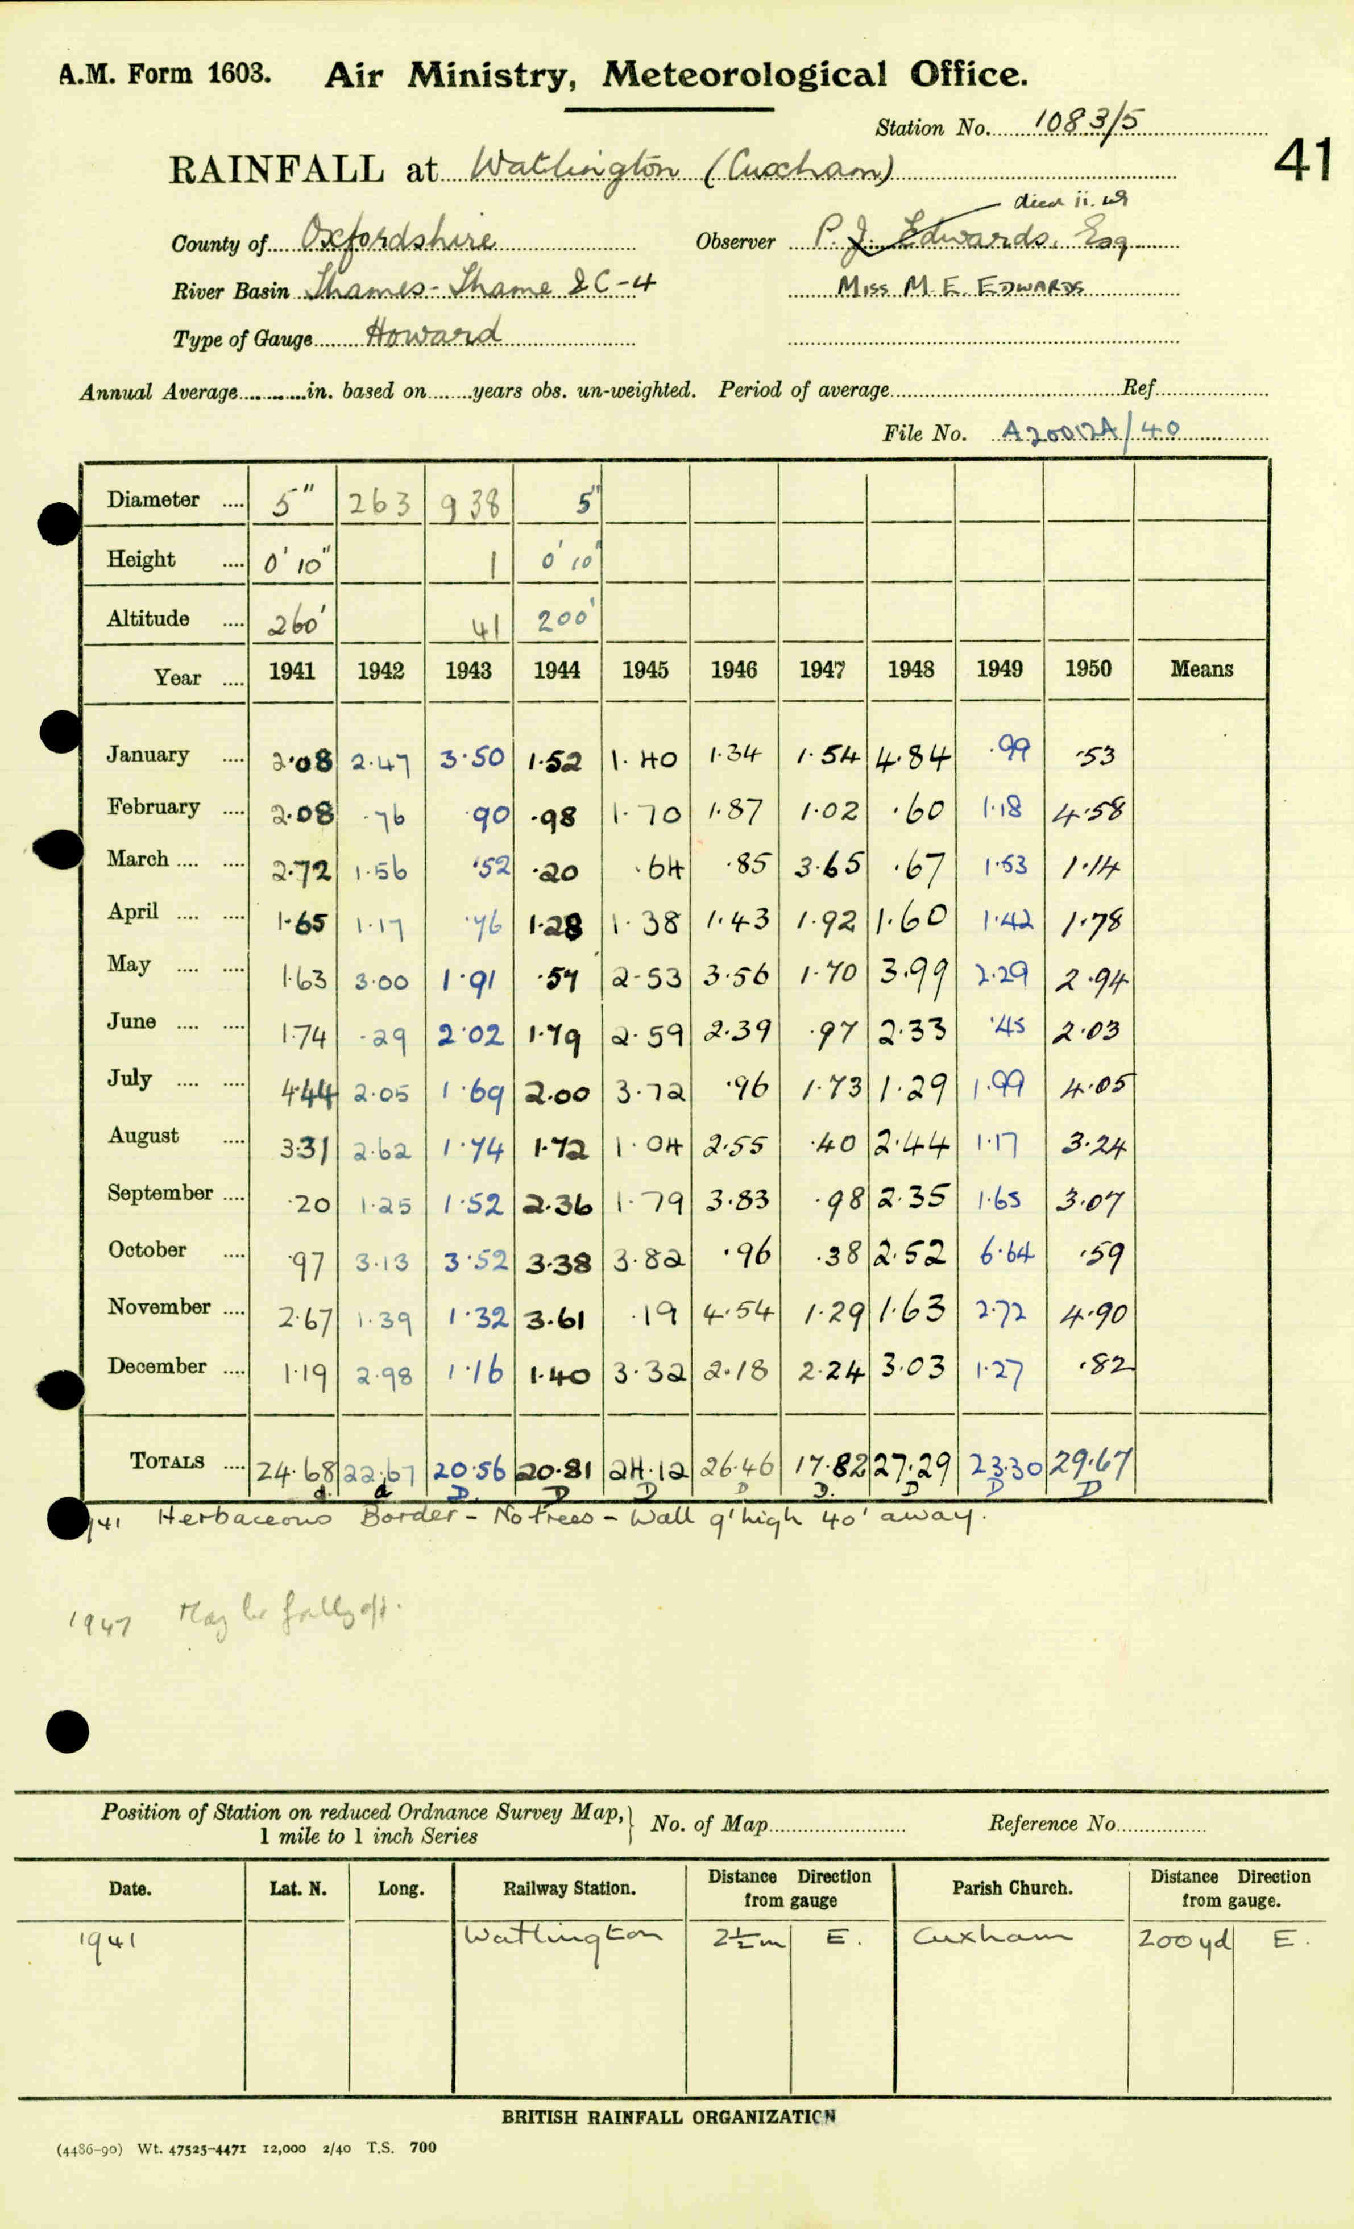 A.M. Form 1603. Air Ministry, Meteorological Office.
Station No. 1083/5
41
RAINFALL at Watlington (Cuxham)
died 11.48
County of Oxfordshire Observer P. J. Edwards, Esq
River Basin Thames - Thame & C-4 MISS M. E. EDWARDS
Type of Gauge Howard
Annual Average in. based on years obs. un-weighted. Period of average Ref
File No. A20012A/40
Diameter .... 5" 263 938 5"
Height .... 0' 10" 1 0' 10"
Altitude .... 260' 41 200'
Year .... 1941 1942 1943 1944 1945 1946 1947 1948 1949 1950 Means
January .... 2.08 2.47 3.50 1.52 1.40 1.34 1.54 4.84 .99 .53
February .... 2.08 .76 .90 .98 1.70 1.87 1.02 .60 1.18 4.58
March .... .... 2.72 1.56 .52 .20 .64 .85 3.65 .67 1.53 1.14
April .... .... 1.65 1.17 .76 1.28 1.38 1.43 1.92 1.60 1.42 1.78
May .... .... 1.63 3.00 1.91 .57 2.53 3.56 1.70 3.99 2.29 2.94
June .... .... 1.74 .29 2.02 1.79 2.59 2.39 .97 2.33 .45 2.03
July .... .... 4.44 2.05 1.69 2.00 3.72 .96 1.73 1.29 1.99 4.05
August .... 3.31 2.62 1.74 1.72 1.04 2.55 .40 2.44 1.17 3.24
September .... .20 1.25 1.52 2.36 1.79 3.83 .98 2.35 1.65 3.07
October .... .97 3.13 3.52 3.38 3.82 .96 .38 2.52 6.64 .59
November .... 2.67 1.39 1.32 3.61 .19 4.54 1.29 1.63 2.72 4.90
December .... 1.19 2.98 1.16 1.40 3.32 2.18 2.24 3.03 1.27 .82
TOTALS .... 24.68 22.67 20.56 20.81 24.12 26.46 17.82 27.29 23.30 29.67
d. d D. D D D D. D D D
Herbaceous Border - No trees - Wall 9' high 40' away.
1947 May be
Position of Station on reduced Ordnance Survey Map, No. of Map Reference No.
1 mile to 1 inch Series
Date. Lat. N. Long. Railway Station. Distance Direction from gauge Parish Church. Distance Direction from gauge.
1941 Watlington 2½ m E. Cuxham 200 yd E.
BRITISH RAINFALL ORGANIZATION
(4486-90) Wt. 47525-4471 12,000 2/40 T.S. 700